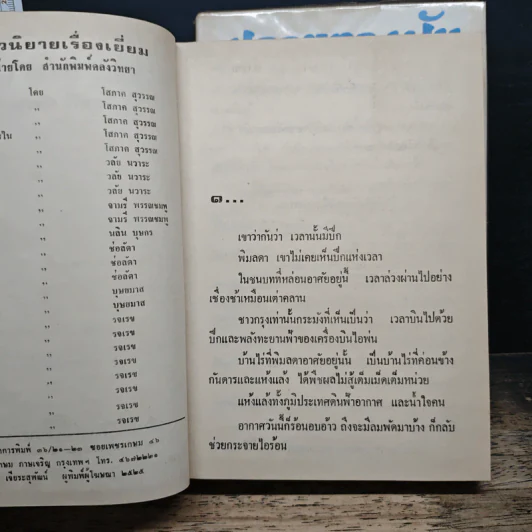 วนิยายเรื่องเยี่ยม
ายโดย สำนักพิมพ์คลังวิทยา
โดย โสภาค สุวรรณ
,, โสภาค สุวรรณ
,, โสภาค สุวรรณ
,, โสภาค สุวรรณ
,, โสภาค สุวรรณ
,, วลัย นวาระ
,, วลัย นวาระ
,, วลัย นวาระ
,, จามรี พรรณชมพู
,, จามรี พรรณชมพู
,, นลิน บุษกร
,, ช่อลัดา
,, ช่อลัดา
,, ช่อลัดา
,, บุษยมาส
,, บุษยมาส
,, รจเรข
,, รจเรข
,, รจเรข
,, รจเรข
,, รจเรข
,, รจเรข
,, รจเรข
,, รจเรข
การพิมพ์ ๓๖/๒๑-๒๓ ซอยเพชรเกษม ๔๖
กษม ภาษเจริญ กรุงเทพฯ โทร. ๔๖๗๒๒๒๑
เจียระสุพัฒน์ ผู้พิมพ์ผู้โฆษณา ๒๕๒๕
๑...
เขาว่ากันว่า เวลานั้นมีปีก
พิมลดา เขาไม่เคยเห็นปีกแห่งเวลา
ในชนบทที่หล่อนอาศัยอยู่นี้ เวลาล่วงผ่านไปอย่าง
เชื่องช้าเหมือนเต่าคลาน
ชาวกรุงเท่านั้นกระมังที่เห็นเป็นว่า เวลาบินไปด้วย
ปีกและพลังทะยานฟ้าของเครื่องบินไอพ่น
บ้านไร่ที่พิมลดาอาศัยอยู่นั้น เป็นบ้านไร่ที่ค่อนข้าง
กันดารและแห้งแล้ง ได้พืชผลไม่สู้เต็มเม็ดเต็มหน่วย
แห้งแล้งทั้งภูมิประเทศดินฟ้าอากาศ และน้ำใจคน
อากาศวันนี้ก็ร้อนอบอ้าว ถึงจะมีลมพัดมาบ้าง ก็กลับ
ช่วยกระจายไอร้อน